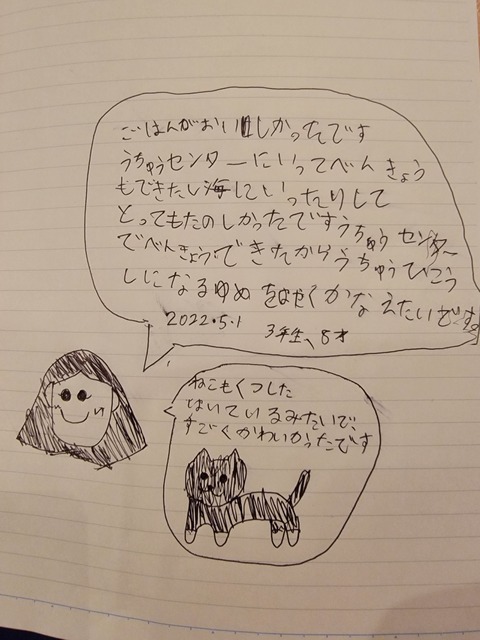 ごはんがおいしかったです
うちゅうセンターにいってべんきょう
もできたし海にいったりして
とってもたのしかったですうちゅうセンター
でべんきょうできたからうちゅうひこう
しになるゆめをはやくかなえたいです。
2022.5.1 3年生、8才
ねこもくつした
はいているみたいで、
すごくかわいかったです